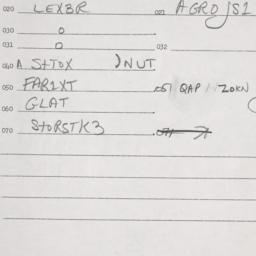 020 LEXBR 021 AGROJS1
030 0
031 0 032
040 A StTOX )NUT
050 FAR1XT 051 QAP / ZOKN
060 GLAT
070 StORSTK3 071